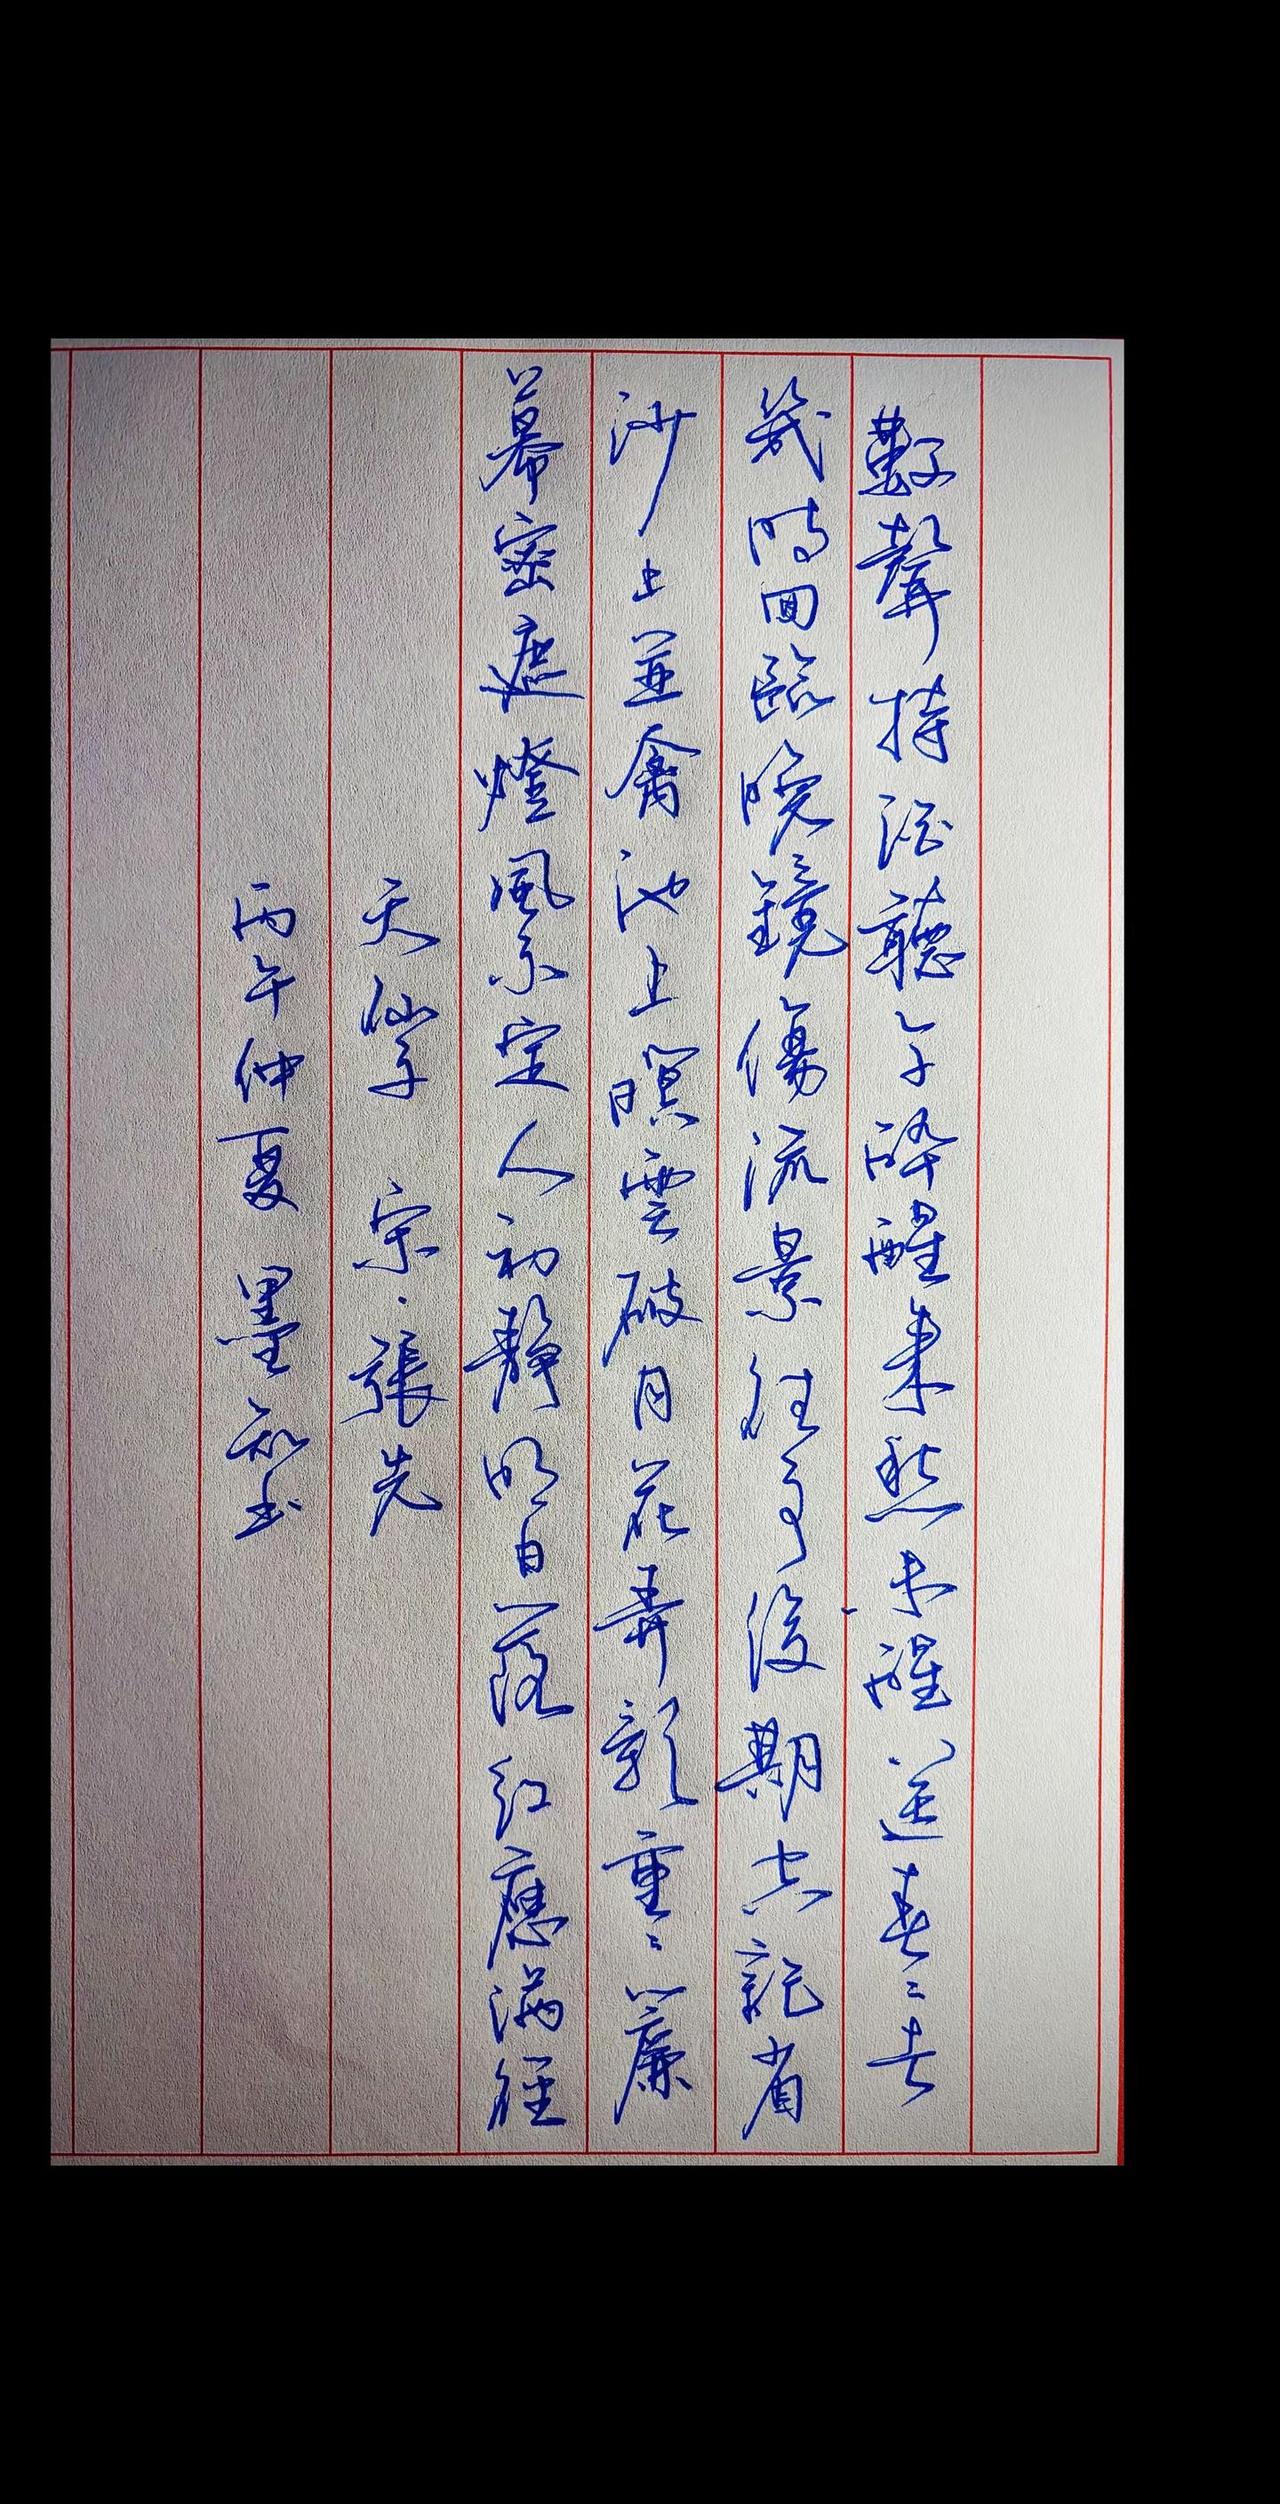 數聲持酒聽午醉醒來愁未醒送春〻去
幾時回臨晚鏡傷流景往事後期空記省
沙上並禽池上暝雲破月花弄影重〻簾
幕密遮燈風不定人初靜明日落紅應滿徑
天仙子 宋·張先
丙午仲夏 墨和书